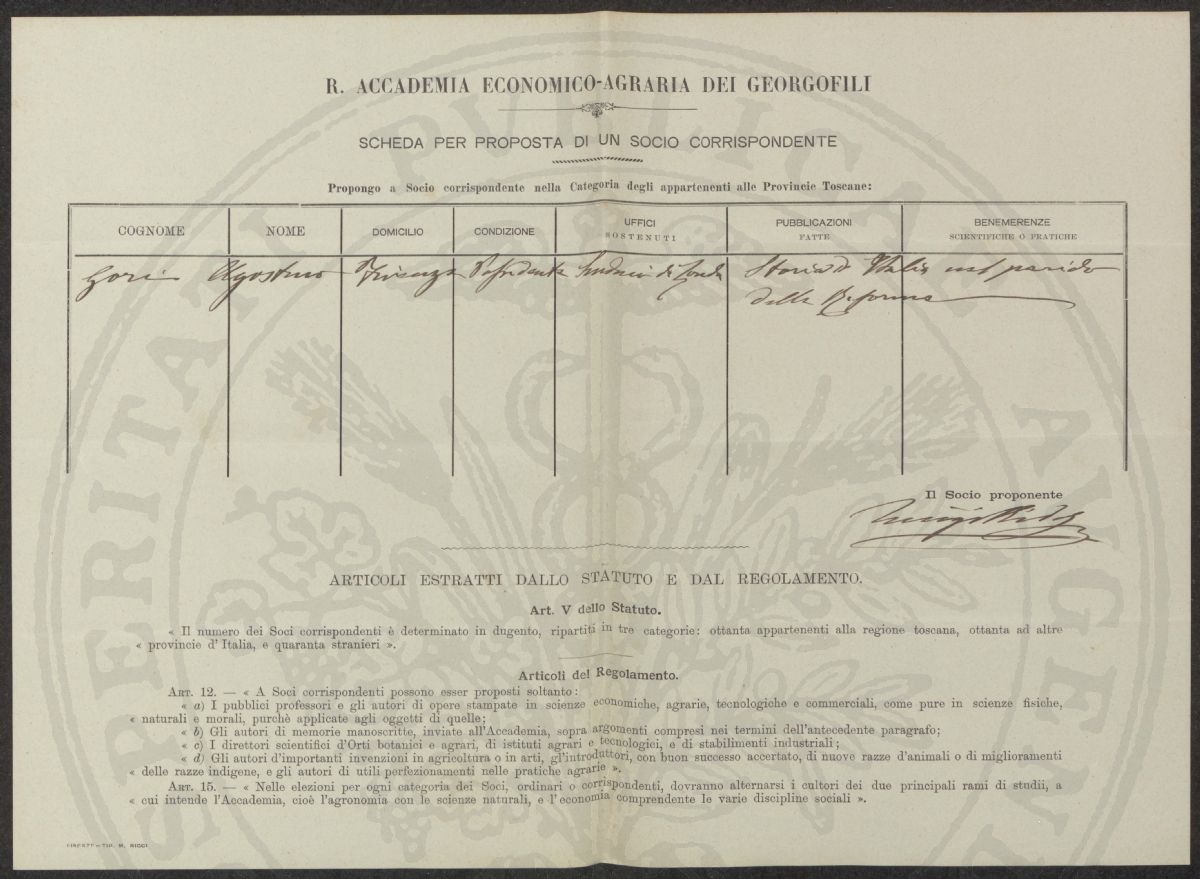 R. ACCADEMIA ECONOMICO-AGRARIA DEI GEORGOFILI
SCHEDA PER PROPOSTA DI UN SOCIO CORRISPONDENTE
Propongo a Socio corrispondente nella Categoria degli appartenenti alle Provincie Toscane:
COGNOME NOME DOMICILIO CONDIZIONE UFFICI SOSTENUTI PUBBLICAZIONI FATTE BENEMERENZE SCIENTIFICHE O PRATICHE
Gori Agostino Firenze Possidente Sindaco di Londa Storia d'Italia nel periodo
della Riforma
Il Socio proponente
Luigi
ARTICOLI ESTRATTI DALLO STATUTO E DAL REGOLAMENTO.
Art. V dello Statuto.
« Il numero dei Soci corrispondenti è determinato in dugento, ripartiti in tre categorie: ottanta appartenenti alla regione toscana, ottanta ad altre
« provincie d'Italia, e quaranta stranieri ».
Articoli del Regolamento.
ART. 12. — « A Soci corrispondenti possono esser proposti soltanto:
« a) I pubblici professori e gli autori di opere stampate in scienze economiche, agrarie, tecnologiche e commerciali, come pure in scienze fisiche,
« naturali e morali, purchè applicate agli oggetti di quelle;
« b) Gli autori di memorie manoscritte, inviate all'Accademia, sopra argomenti compresi nei termini dell'antecedente paragrafo;
« c) I direttori scientifici d'Orti botanici e agrari, di istituti agrari e tecnologici, e di stabilimenti industriali;
« d) Gli autori d'importanti invenzioni in agricoltura o in arti, gl'introduttori, con buon successo accertato, di nuove razze d'animali o di miglioramenti
« delle razze indigene, e gli autori di utili perfezionamenti nelle pratiche agrarie ».
ART. 15. — « Nelle elezioni per ogni categoria dei Soci, ordinari o corrispondenti, dovranno alternarsi i cultori dei due principali rami di studii, a
« cui intende l'Accademia, cioè l'agronomia con le scienze naturali, e l'economia comprendente le varie discipline sociali ».
FIRENZE – TIP. M. RICCI
PROSPERITATI PVBLICAE AVGENDAE